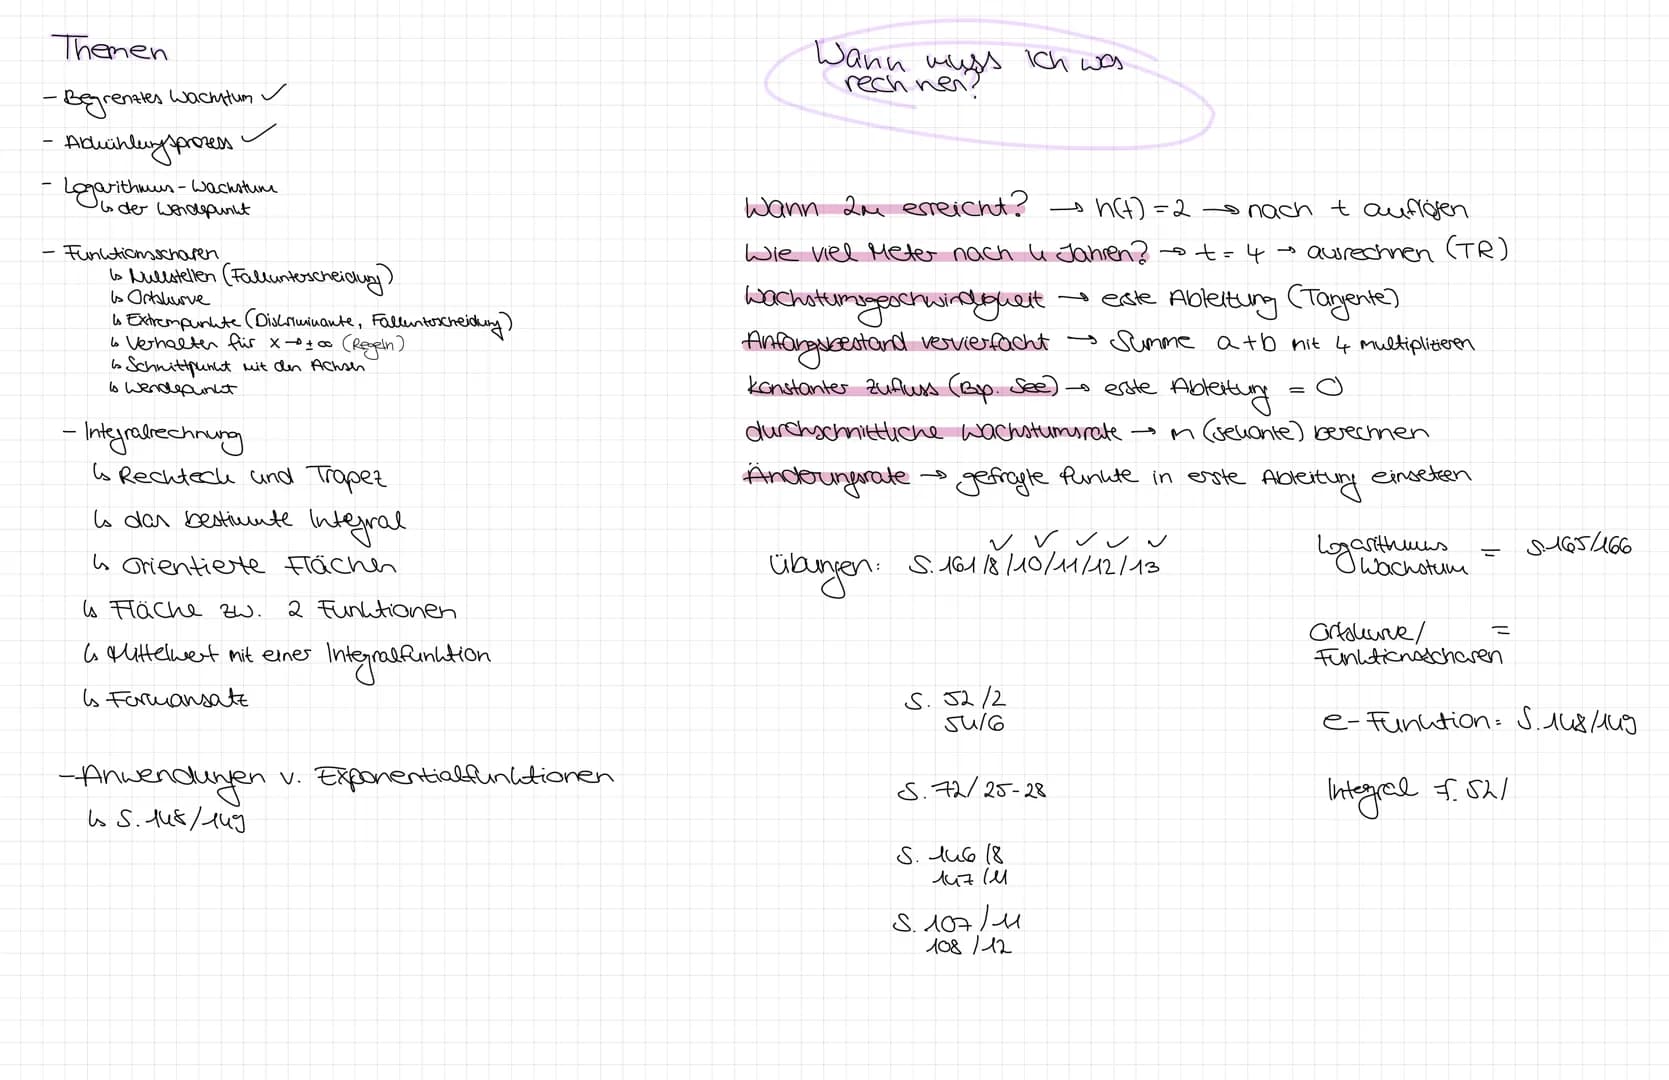 Themen
- Begrenztes Wachstum ✓
- Abkühlungsprozess ✓
- Logarithmus - Wachstum
↳ der Wendepunkt
- Funktionsscharen
↳ Nullstellen (Fallunterscheidung)
↳ Ortskurve
↳ Extrempunkte (Diskriminante, Fallunterscheidung)
↳ Verhalten für x → ± ∞ (Regeln)
↳ Schnittpunkt mit den Achsen
↳ Wendepunkt
- Integralrechnung
↳ Rechteck und Trapez
↳ das bestimmte Integral
↳ Orientierte Flächen
↳ Fläche zw. 2 Funktionen
↳ Mittelwert mit einer Integralfunktion
↳ Formansatz
- Anwendungen v. Exponentialfunktionen
↳ S. 148/149
Wann muss ich was
rechnen?
Wann 2m erreicht? → h(t) = 2 → nach t auflösen
Wie viel Meter nach 4 Jahren? → t = 4 → ausrechnen (TR)
Wachstumsgeschwindigkeit → erste Ableitung (Tangente)
Anfangsbestand vervierfacht → Summe a+b mit 4 multiplizieren
konstanter Zufluss (Bsp. See) → erste Ableitung = 0
durchschnittliche Wachstumsrate → m (Sekante) berechnen
Änderungsrate → gefragte Punkte in erste Ableitung einsetzen
✓ ✓ ✓ ✓ ✓
Übungen: S. 161/8/10/11/12/13
S. 52/2
54/6
S. 72/25-28
S. 146/8
147/11
S. 107/11
108/12
Logarithmus = S. 165/166
Wachstum
Ortskurve/ =
Funktionsscharen
e-Funktion: S. 148/149
Integral f. 52/